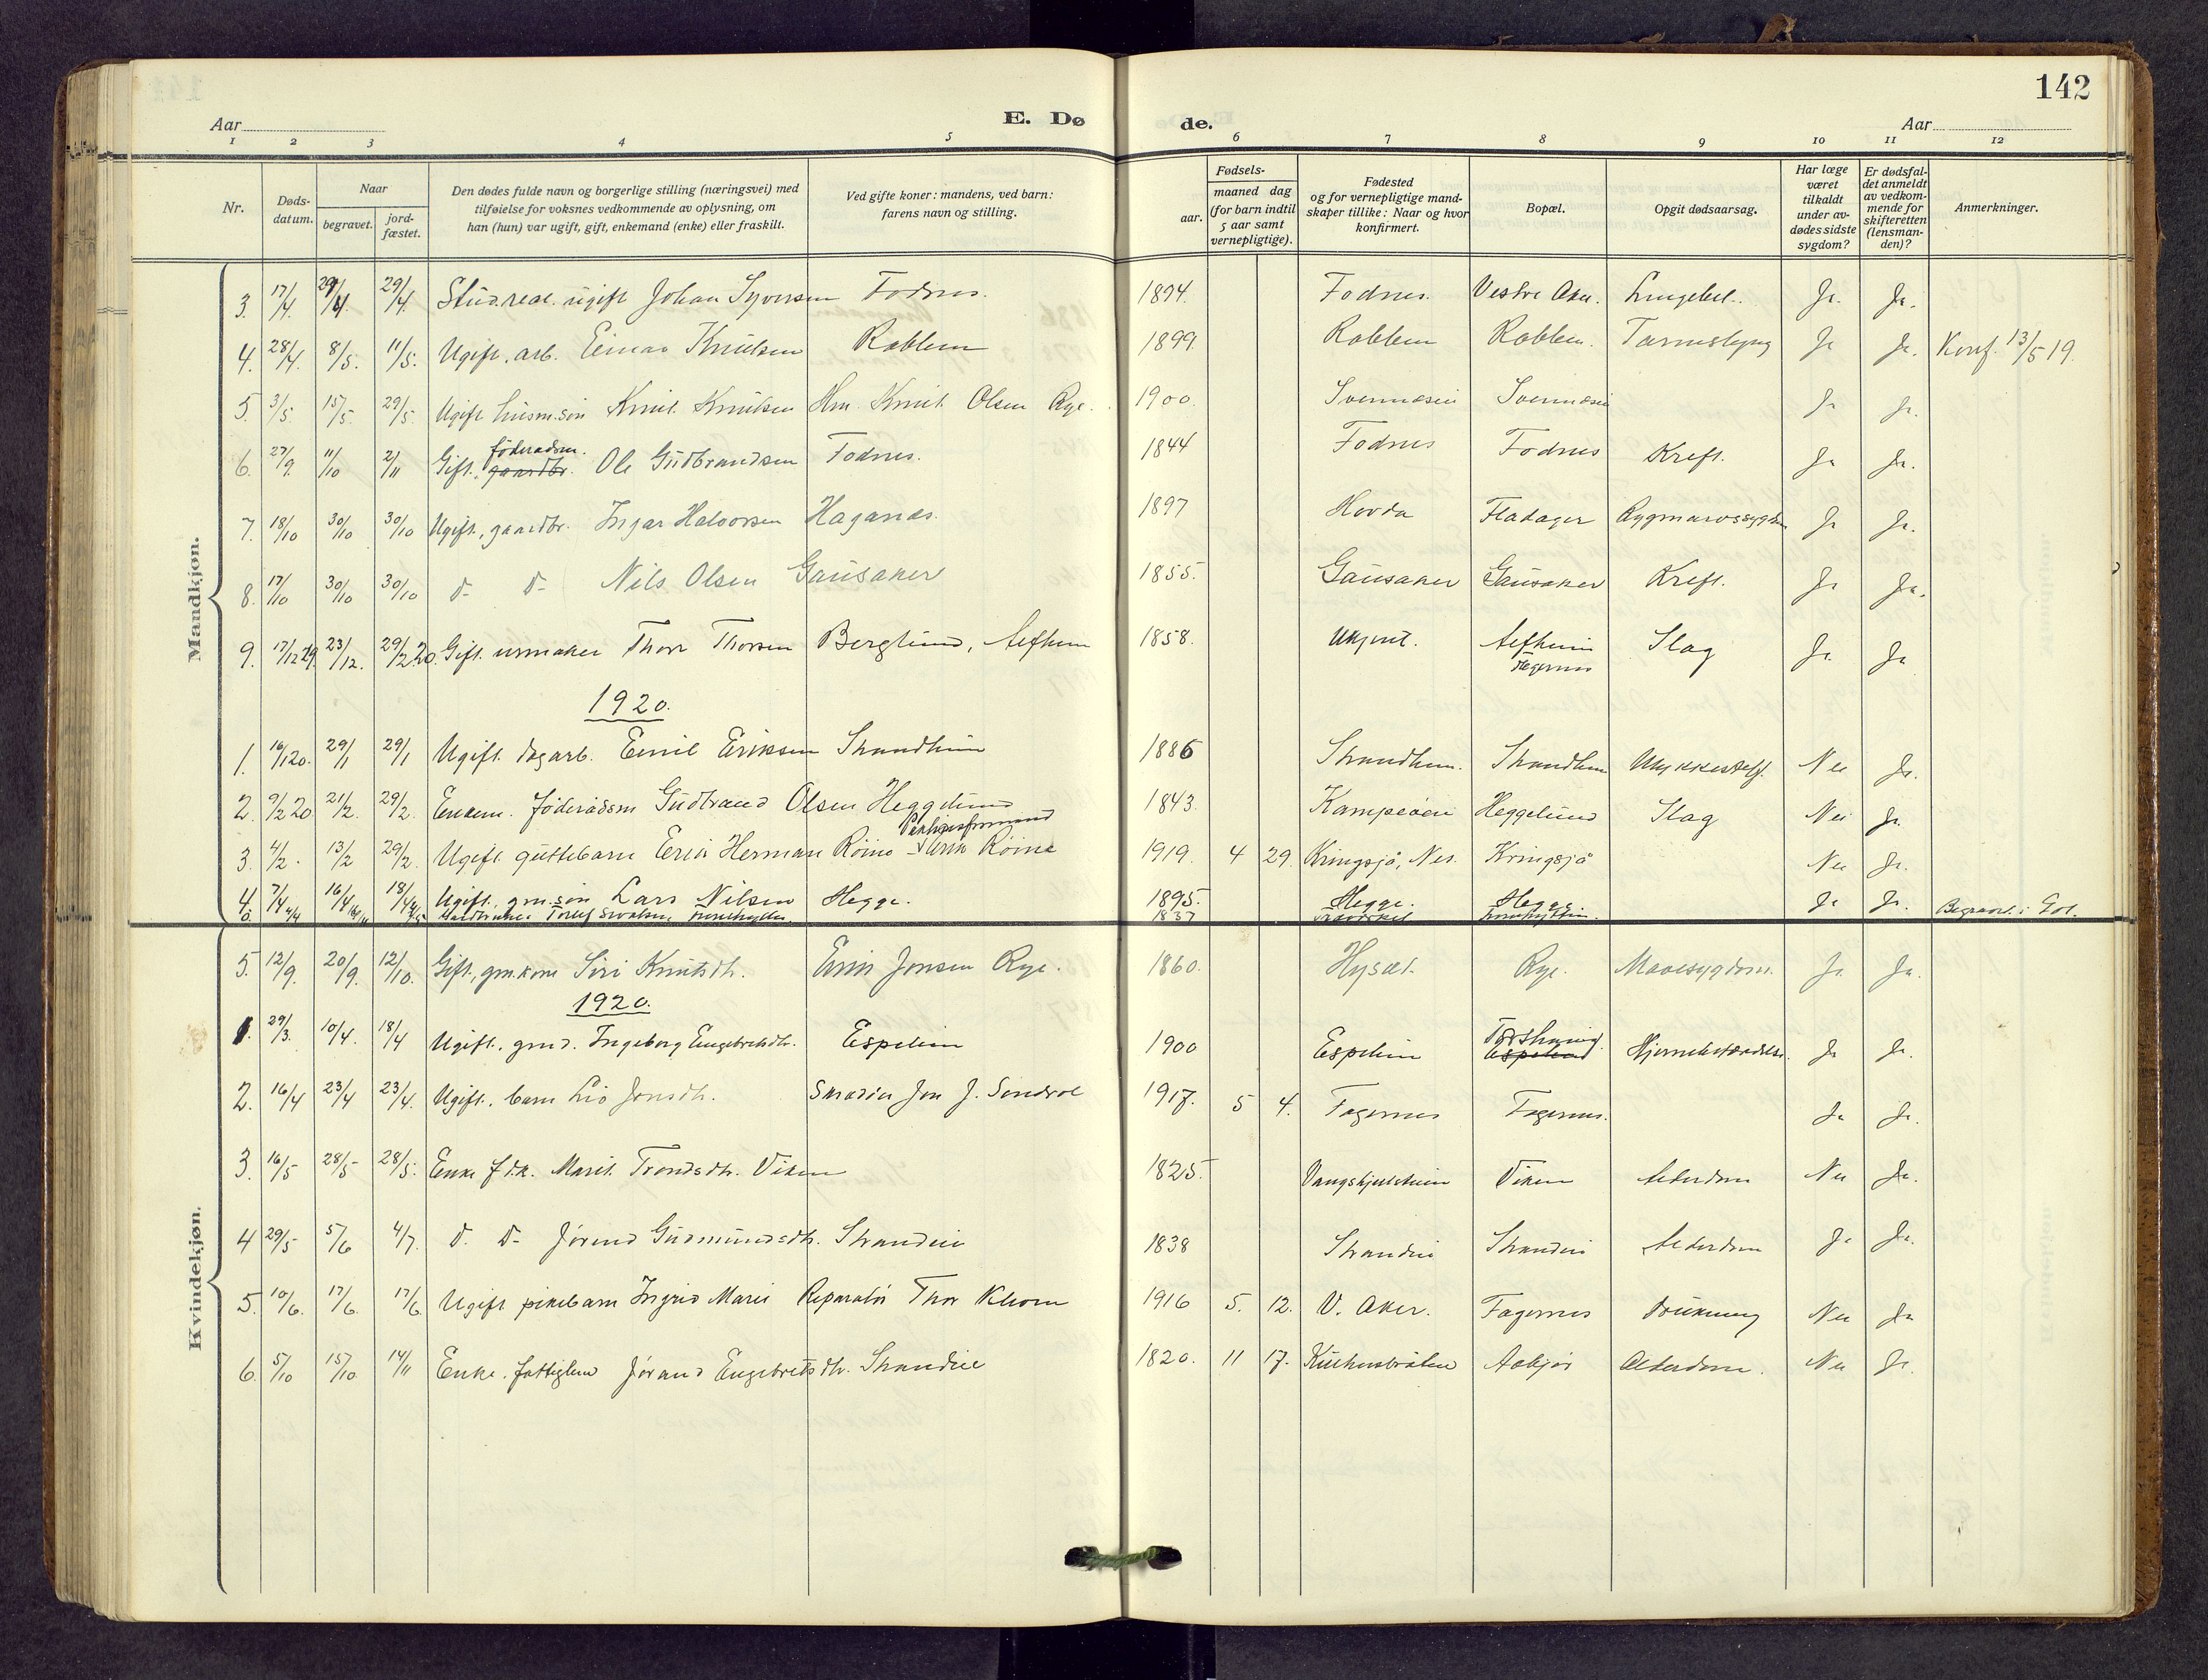 142
Aar
E. Dø
de.
Aar
1 2 3 4 5 6 7 8 9 10 11 12
Nr.
Døds-
datum.
Naar
begravet.
jord-
fæstet.
Den dødes fulde navn og borgerlige stilling (næringsvei) med
tilføielse for voksnes vedkommende av oplysning, om
han (hun) var ugift, gift, enkemand (enke) eller fraskilt.
Ved gifte koner: mandens, ved barn:
farens navn og stilling.
Fødsels-
aar.
maaned dag
(for barn indtil
5 aar samt
vernepligtige).
Fødested
og for vernepligtige mand-
skaper tillike: Naar og hvor
konfirmert.
Bopæl.
Opgit dødsaarsag.
Har læge
været
tilkaldt
under av-
dødes sidste
sygdom?
Er dødsfal-
det anmeldt
av vedkom-
mende for
skifteretten
(lensman-
den)?
Anmerkninger.
Mandkjøn.
3. 17/4. 29/4. 29/4. Stud. real. ugift Johan Syversen Fodnes. 1894. Fodnes. Vestre Aker. Ja. Ja.
4. 28/4. 8/5. 11/5. Ugift. arb. Einar Knutsen Robblem 1899 Robblem Robblem. Ja Ja. Konf. 13/5 19.
5. 3/5. 15/5. 29/5. Ugift husm.søn Knut Knutsen Hm. Knut Olsen Rye. 1900. Ja Ja.
föderaadsm.
6. 27/9. 11/10 2/11 Gift. gaardbr. Ole Gudbrandsen Fodnes. 1844 Fodnes Fodnes Kreft. Ja Ja.
7. 18/10 30/10 30/10 Ugift, gaardbr. Ingar Halvorsen Haganes. 1897 Hovda Fladager Rygmarvssygdom Ja Ja.
8. 17/10 30/10 30/10 d- d- Nils Olsen Gausaker 1855. Gausaker Gausaker Kreft. Ja Ja.
9. 17/12 19. 23/12. 29/2 20. Gift. urmaker Thor Thorsen Berglund, 1858. Ukjent. Slag Ja. Ja
Fagernes
1920.
1. 16/1 20. 29/1 29/1 Ugift. dagarb. Emil Eriksen Strandheim 1886 Strandheim. Strandheim Ulykkestilf. Nei Ja.
2. 9/2 20 21/2. 29/2. Enkem. föderaadsm Gudbrand Olsen Heggelund 1843. Heggelund Slag Nei Ja.
3 4/2. 13/2 29/2. Ugift guttebarn Erik Herman Röine Erik Röine 1919. 4 29. Kringsjå, Nes. Kringsjå Nei Ja.
4. 7/4 16/4 18/4 Ugift. gm.søn Lars Nilsen Hegge. 1895. Hegge. Hegge Ja Ja.
1837 Begravet i Gol.
Kvindekjøn.
5. 12/9. 20/9. 12/10. Gift, gm.kone Siri Knutsdtr. Erik Jonsen Rye. 1860. Rye. Mavesygdom. Ja Ja.
1920.
1. 29/3. 10/4. 18/4 Ugift. gmd. Ingeborg Engebretsdtr. Espelien 1900 Espelien Hjernebetændelse. Ja Ja.
2. 16/4 23/4 23/4. Ugift. barn Liv Jonsdtr. Skrædder Jon J. Sondrol 1917. 5 4. Fagernes Fagernes. Ja Ja.
3. 16/5 28/5 28/5. Enke f.d.k. Marit Trondsdtr. Viken 1825. Viken Alderdom Nei Ja.
4 29/5 5/6 4/7. d. d- Jörand Gudmundsdtr. Strandlie 1838 Strandlie Strandlie Alderdom Ja Ja.
5. 10/6. 17/6. 17/6 Ugift pikebarn Ingrid Marie Reparatör Thor Klhorn 1916 5. 12. V. Aker. Fagernes Drukning Nei Ja
6. 5/10 15/10 14/11 Enke. fattiglem Jörand Engebretsdtr. Strandlie 1820. 11 17. Alderdom. Nei Ja.